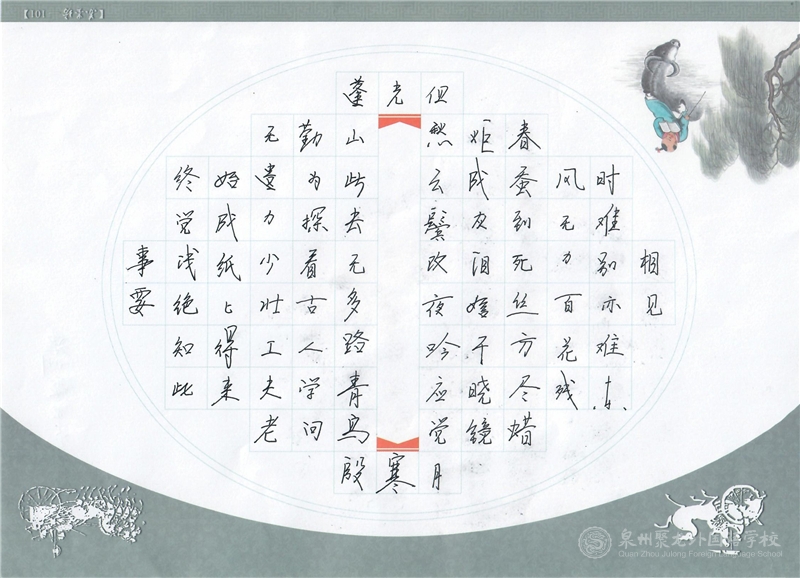 相见
时难别亦难东
风无力百花残
春蚕到死丝方尽蜡
炬成灰泪始干晓镜
但愁云鬓改夜吟应觉月
光寒
蓬山此去无多路青鸟殷
勤为探看古人学问
无遗力少壮工夫老
始成纸上得来
终觉浅绝知此
事要
泉州聚龙外国语学校
Quan Zhou Julong Foreign Language School